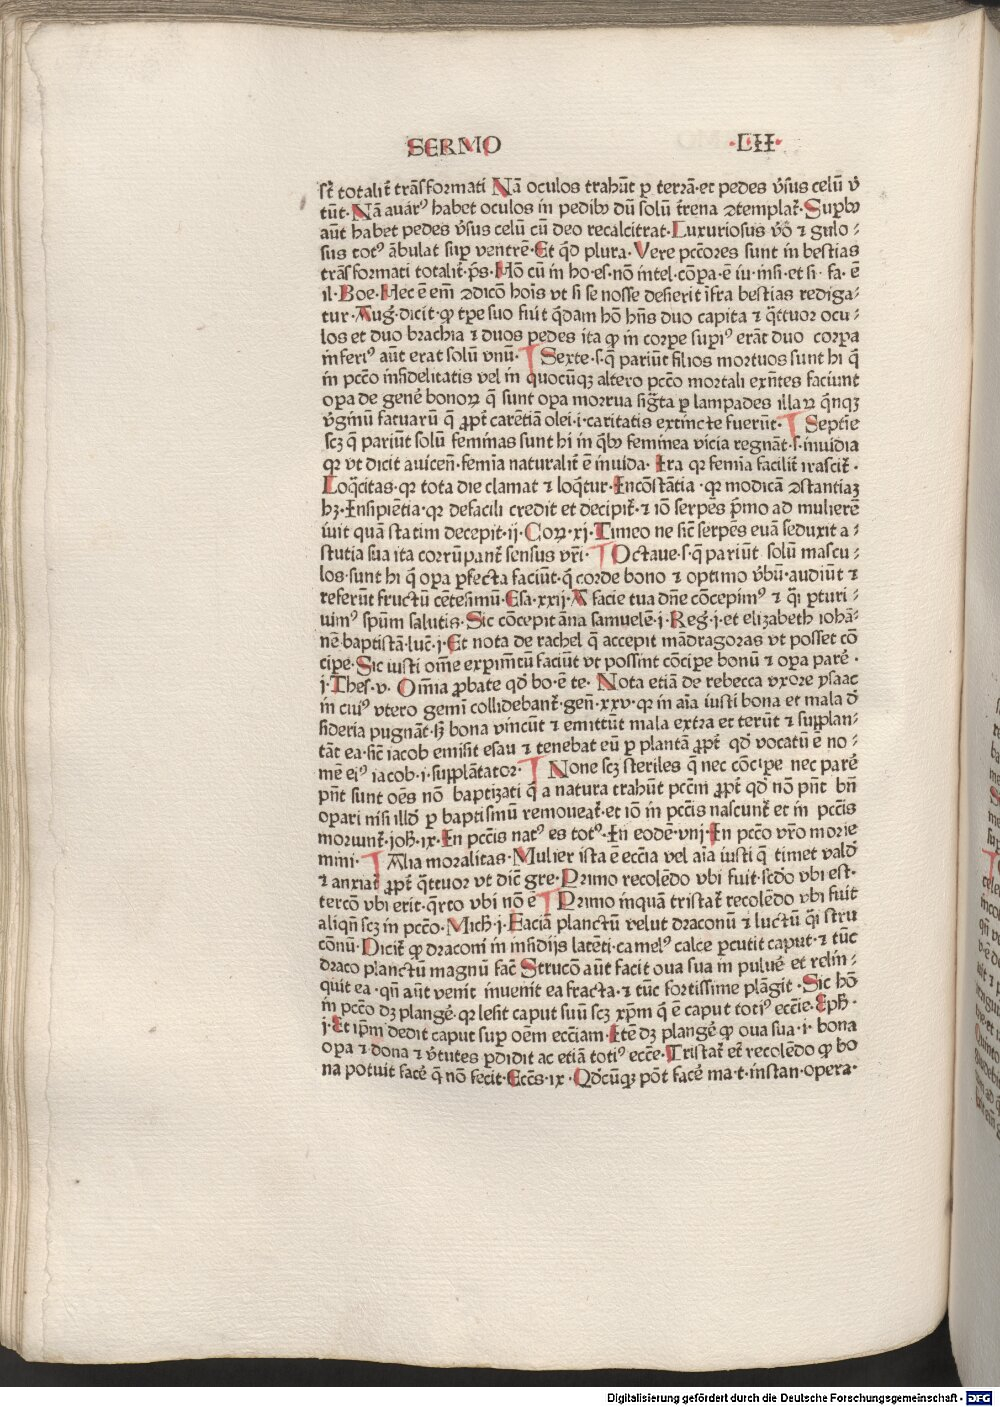 SERMO ·LII·
st̄ totalit̄ trãsformati Nã oculos trahũt ꝑ terrã·et pedes v̓sus celũ v̓
tũt·Nã auarꝰ habet oculos in pedibꝯ dũ solũ t̓rena ꝯtemplat̃·Suꝑbꝯ
aũt habet pedes v̓sus celũ cũ deo recalcitrat·Luxuriosus v̓o ⁊ gulo⸗
sus totꝰ ãbulat suꝑ ventrẽ·Et qͥd plura·Vere pctõres sunt in bestias
trãsformati totalit̃·p̃s·Hõ cũ in ho·es·nõ intel·cõpa·ẽ iu·insi·et si·fa·ẽ
il·Boe·Hec ẽ eni̅ ꝯdicõ hoi̅s vt si se nosse desierit i̅fra bestias rediga⸗
tur·Aug̃·dicit·ꝙ tꝑe suo fuit qͥdam hõ hñs duo capita ⁊ q̃ttuor ocu⸗
los et duo brachia ⁊ duos pedes ita ꝙ in corꝑe suꝑiꝰ erãt duo corꝑa
inferiꝰ aũt erat solũ vnũ· Sexte·s·q̃ pariũt filios mortuos sunt hi q̃
in pctõ infidelitatis vel in quocũqꝫ altero pctõ mortali exñtes faciunt
oꝑa de gene̓ bonoꝝ q̃ sunt oꝑa mortua sig̃ta ꝑ lampades illaꝝ q̃nqꝫ
v̓ginũ fatuarũ q̃ ꝓpt̃ carẽtiã olei·i·caritatis extincte fuerũt· Septi̅e
scꝫ q̃ pariũt solũ feminas sunt hi in qͥbꝯ feminea vicia regnãt·s·inuidia
qꝛ vt dicit auicen̅·femi̅a naturalit̃ ẽ inuida·Ira qꝛ femi̅a facilit̃ irascit̃·
Loq̃citas·qꝛ tota die clamat ⁊ loq̃tur·Incõstãtia·qꝛ modicã ꝯstantiaꝫ
hꝫ·Insipiẽtia·qꝛ defacili credit et decipit̃·⁊ iõ serpẽs p̃mo ad mulierẽ
iuit quã statim decepit·ij·Coꝝ·xj·Timeo ne sic̃ serpẽs euã seduxit a⸗
stutia sua ita corrũpant̃ sensus vr̃i· Octaue·s·q̃ pariũt solũ mascu⸗
los·sunt hi q̃ oꝑa ꝑfecta faciũt·q̃ corde bono ⁊ optimo v̓bũ·audiũt ⁊
referũt fructũ cẽtesimũ·Esa·xxij·A facie tua dñe cõcepimꝰ ⁊ q̃i ꝑturi⸗
uimꝰ spũm salutis·Sic cõcepit ãna samuelẽ·j·Reg̃·j·et elizabeth iohã⸗
nẽ·baptistã·luc̃·j·Et nota de rachel q̃ accepit mãdragoras vt posset cõ
ciꝑe·Sic iusti om̃e exꝑim̃tũ faciũt vt possint cõciꝑe bonũ ⁊ oꝑa pare̓·
j·Thes·v·Om̃ia ꝓbate qd̓ bo·ẽ te·Nota etiã de rebecca vxore ysaac
in ciuꝰ vtero gemi̅ collidebant̃·gen̅·xxv·qꝛ in ai̅a iusti bona et mala d̓
sideria pugnãt·sꝫ bona vincũt ⁊ emittũt mala extra et terũt ⁊ supplan⸗
tãt ea·sic̃ iacob emisit esau ⁊ tenebat eũ ꝑ plantã ꝓpt̃ qd̓ vocatũ ẽ no⸗
mẽ eiꝰ iacob·i·supplãtator· None scꝫ steriles q̃ nec cõciꝑe nec pare̓
pñt sunt oẽs nõ baptizati q̃ a natura trahũt pctm̃ ꝓpt̃ qd̓ nõ pñt bñ
oꝑari nisi illd̓ ꝑ baptismũ remoueat̃·et iõ in pctis nascunt̃ et in pctis
moriunt̃·joh̃·ix·In pctis natꝰ es totꝰ·In eodẽ·vnj·In pctõ vr̃o morie
mini· Alia moralitas·Mulier ista ẽ ecctia vel ai̅a iusti q̃ timet vald̓
⁊ anxiat̃ ꝓpt̃ q̃ttuor vt dic̃t gre·Primo recolẽdo vbi fuit·scd̓o vbi est·
tercõ vbi erit·q̃rto vbi nõ ẽ Primo inquã tristat̃ recolẽdo vbi fuit
aliqñ scꝫ in pctõ·Mich̃·j·Faciã planctũ velut draconũ ⁊ luctũ q̃i stru
cõnũ·Dicit̃ ꝙ draconi̅ in insidijs latẽti·camelꝰ calce ꝑcutit caput·⁊ tũc
draco planctũ magnũ fac̃ Strucõ aũt facit oua sua in pulue̓ et relin⸗
quit ea·qñ aũt venit inuenit ea fracta·⁊ tũc fortissime plãgit·Sic hõ
in pctõ dꝫ plange̓·qꝛ lesit caput suũ scꝫ xp̃m q̃ ẽ caput totiꝰ ecctie·Eph̃·
j·Et ip̃m dedit caput suꝑ oẽm ecctiam·Itẽ dꝫ plange̓ ꝙ oua sua·i·bona
oꝑa ⁊ dona ⁊ v̓tutes ꝑdidit ac etiã totiꝰ ecctẽ·Tristat̃ et̃ recolẽdo ꝙ bo
na potuit face̓ q̃ nõ fecit·Eccẽs·ix·Qd̓cũqꝫ põt face̓ ma·t·instan·opera·
Digitalisierung gefördert durch die Deutsche Forschungsgemeinschaft - DFG